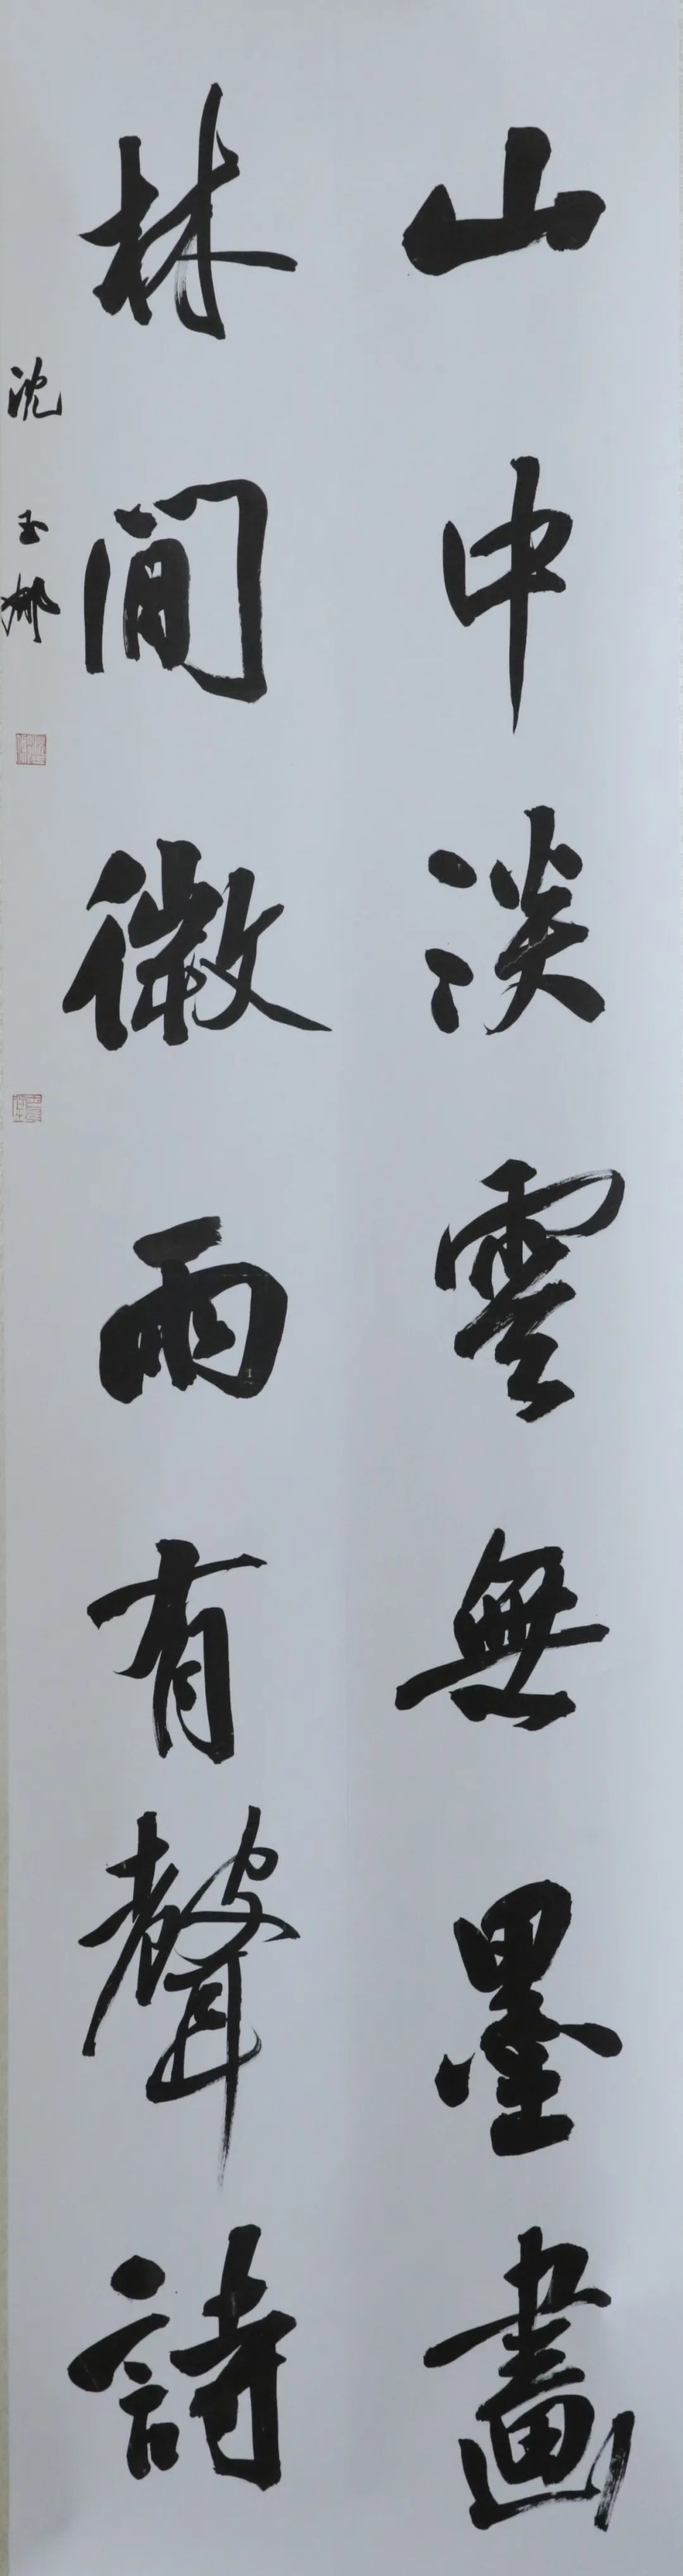 山中淡雲無墨畫
林間微雨有聲詩
沈玉娜